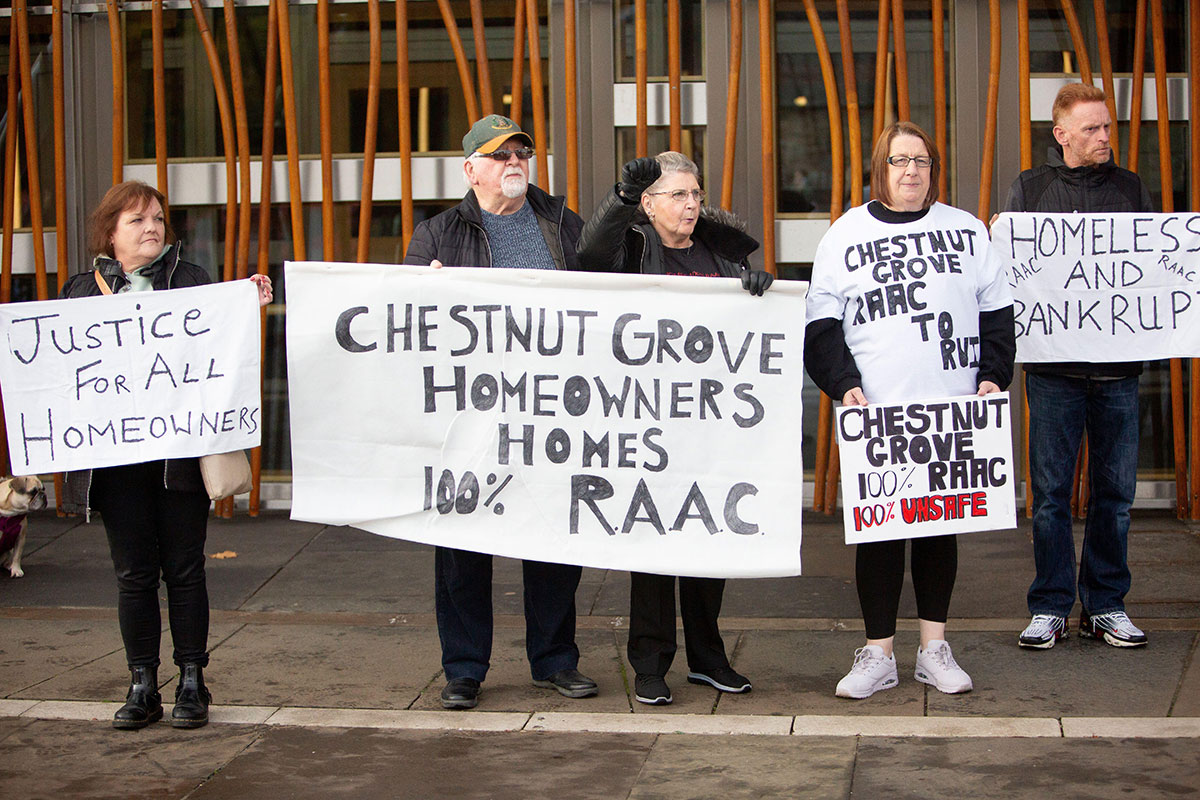 JUSTICE
FOR ALL
HOMEOWNERS
CHESTNUT GROVE
HOMEOWNERS
HOMES
100% R.A.A.C.
CHESTNUT
GROVE
RAAC
TO
RUI
CHESTNUT
GROVE
100% RAAC
100% UNSAFE
HOMELESS
RAAC AND RAAC
BANKRUP